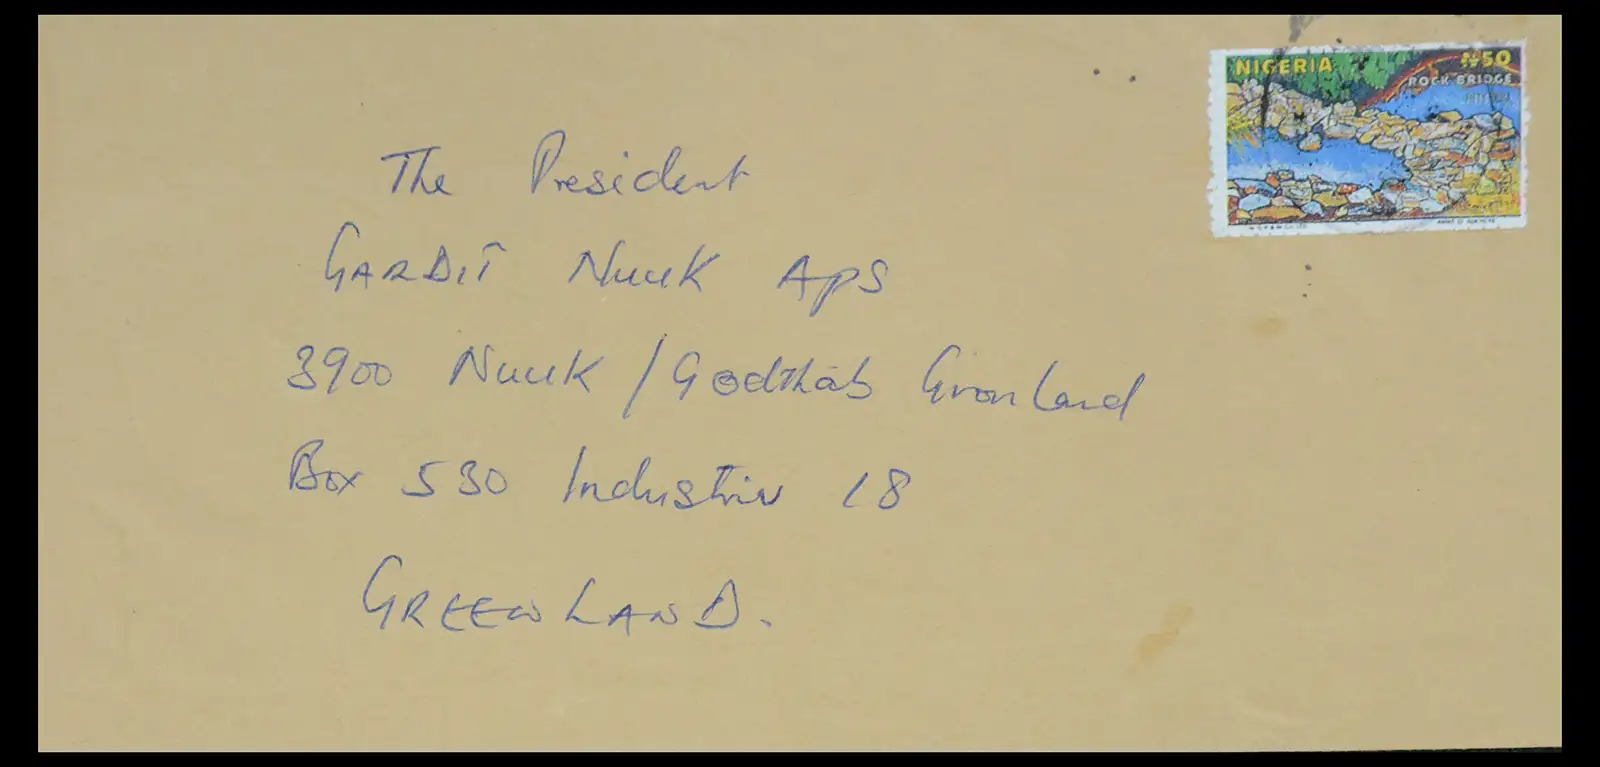 NIGERIA ₦50
ROCK BRIDGE
The President
GARDIT NUUK APS
3900 NUUK / Godthab Gronland
Box 530 Industriv 18
GREENLAND.